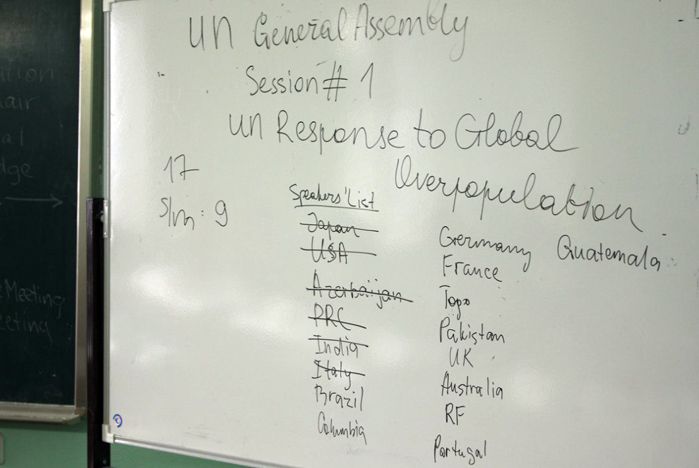 UN General Assembly
Session # 1
UN Response to Global
Overpopulation
17
S/m: 9
Speakers' List
Japan
USA
Azerbaijan
PRC
India
Italy
Brazil
Columbia
Germany
France
Togo
Pakistan
UK
Australia
RF
Portugal
Guatemala
air
dge
Meeting
eeting